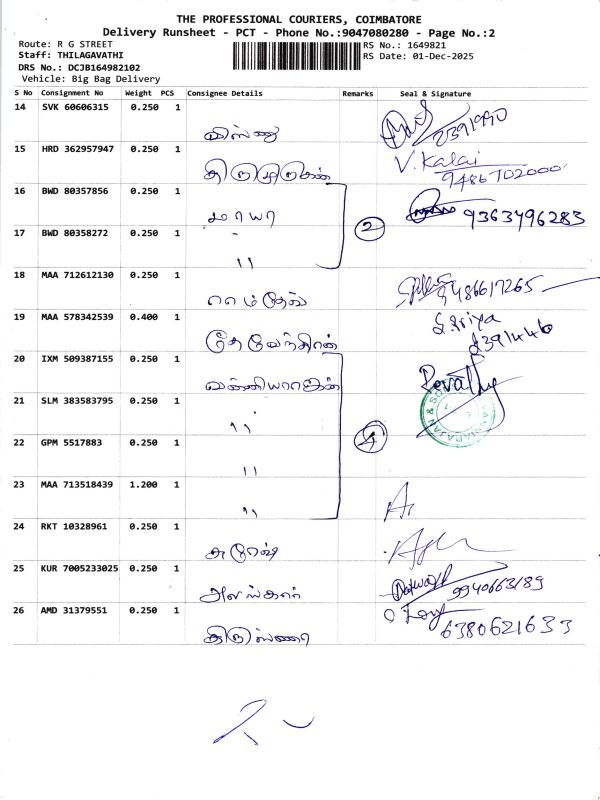 THE PROFESSIONAL COURIERS, COIMBATORE
Delivery Runsheet - PCT - Phone No.:9047080280 - Page No.:2
Route: R G STREET RS No.: 1649821
Staff: THILAGAVATHI RS Date: 01-Dec-2025
DRS No.: DCJB164982102
Vehicle: Big Bag Delivery
S No Consignment No Weight PCS Consignee Details Remarks Seal & Signature
14 SVK 60606315 0.250 1
விஸ்ணு 2391990
15 HRD 362957947 0.250 1 V. Kalai
திருமுருகன் 9486702000
16 BWD 80357856 0.250 1
மாயா 2 9363496283
17 BWD 80358272 0.250 1
"
18 MAA 712612130 0.250 1
9486617265
19 MAA 578342539 0.400 1 S. Sriya
தேவேந்திரன் 2391446
20 IXM 509387155 0.250 1
வன்னியராஜன் Revathy
21 SLM 383583795 0.250 1
"
22 GPM 5517883 0.250 1 4
"
23 MAA 713518439 1.200 1
"
24 RKT 10328961 0.250 1
சுரேஷ்
25 KUR 7005233025 0.250 1
அலங்கார் 9940663189
26 AMD 31379551 0.250 1
கிருஸ்ணா 6380621633